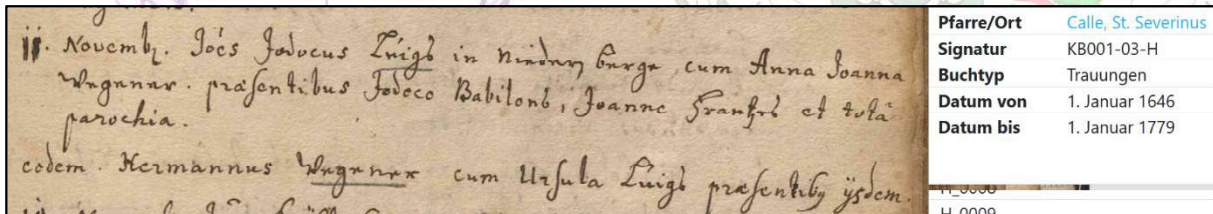 11. Novemb. Joẽs Jodocus Luigs in Niedern berge cum Anna Joanna
Wegener. præsentibus Jodoco Babilons, Joanne Frantzes et totâ
parochia.
eodem. Hermannus Wegener cum Ursula Luigs præsentibq ijsdem.
Pfarre/Ort Calle, St. Severinus
Signatur KB001-03-H
Buchtyp Trauungen
Datum von 1. Januar 1646
Datum bis 1. Januar 1779
H_0009